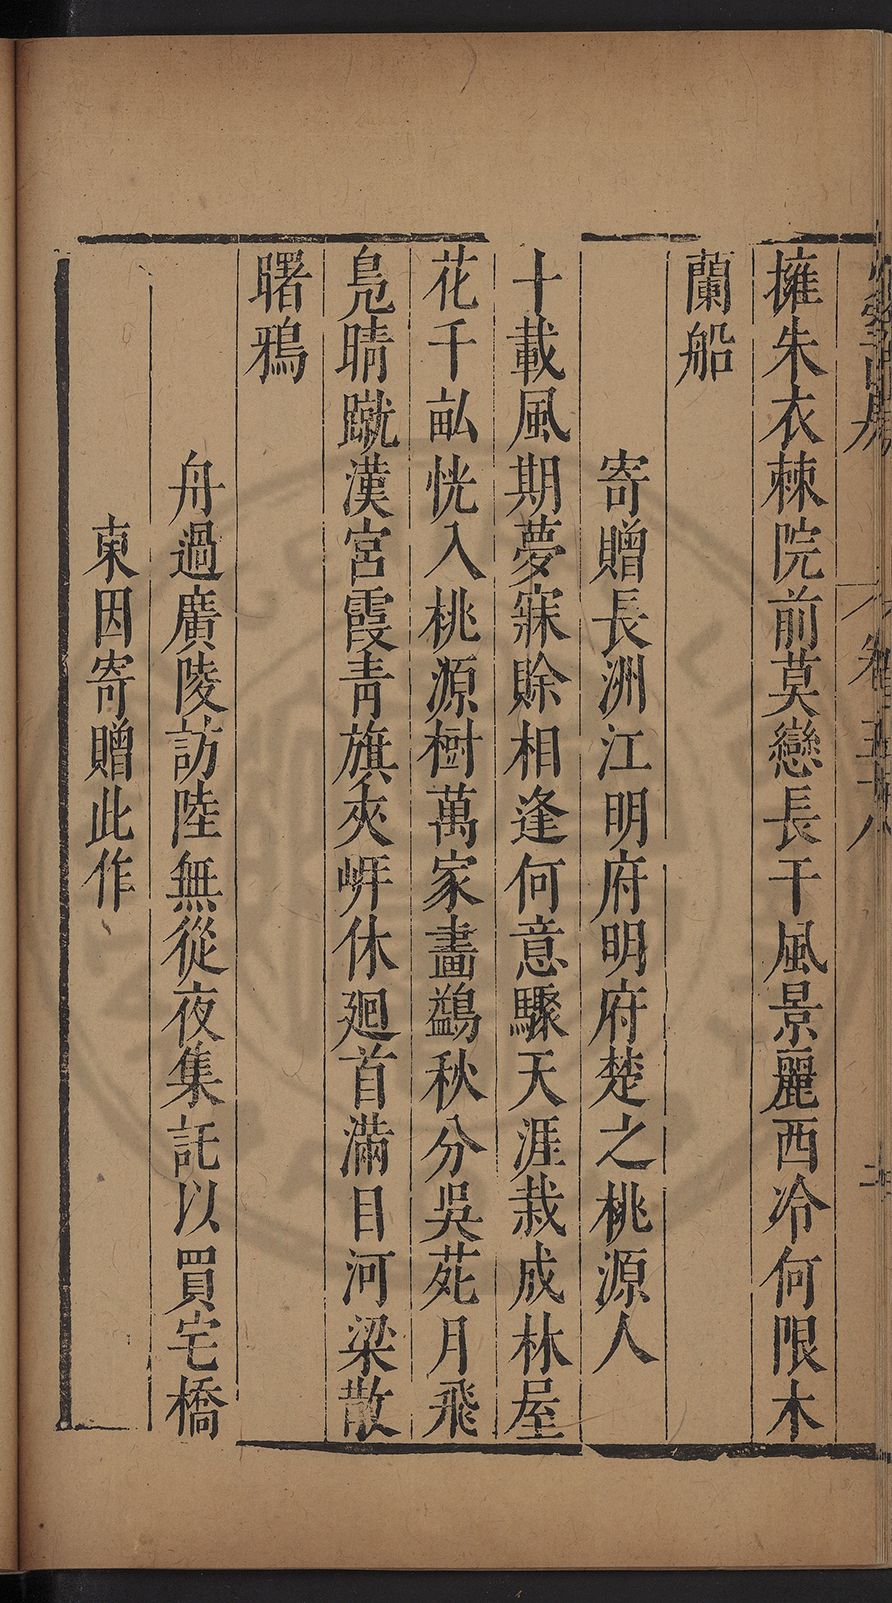 擁朱衣棘院前莫戀長干風景麗西冷何限木
蘭船
寄贈長洲江明府明府楚之桃源人
十載風期夢寐賒相逢何意驟天涯栽成林屋
花千畝恍入桃源樹萬家畵鷁秋分吳苑月飛
鳧晴蹴漢宮霞靑旗夾岍休廻首滿目河梁散
曙鴉
舟過廣陵訪陸無從夜集託以買宅橋
東因寄贈此作